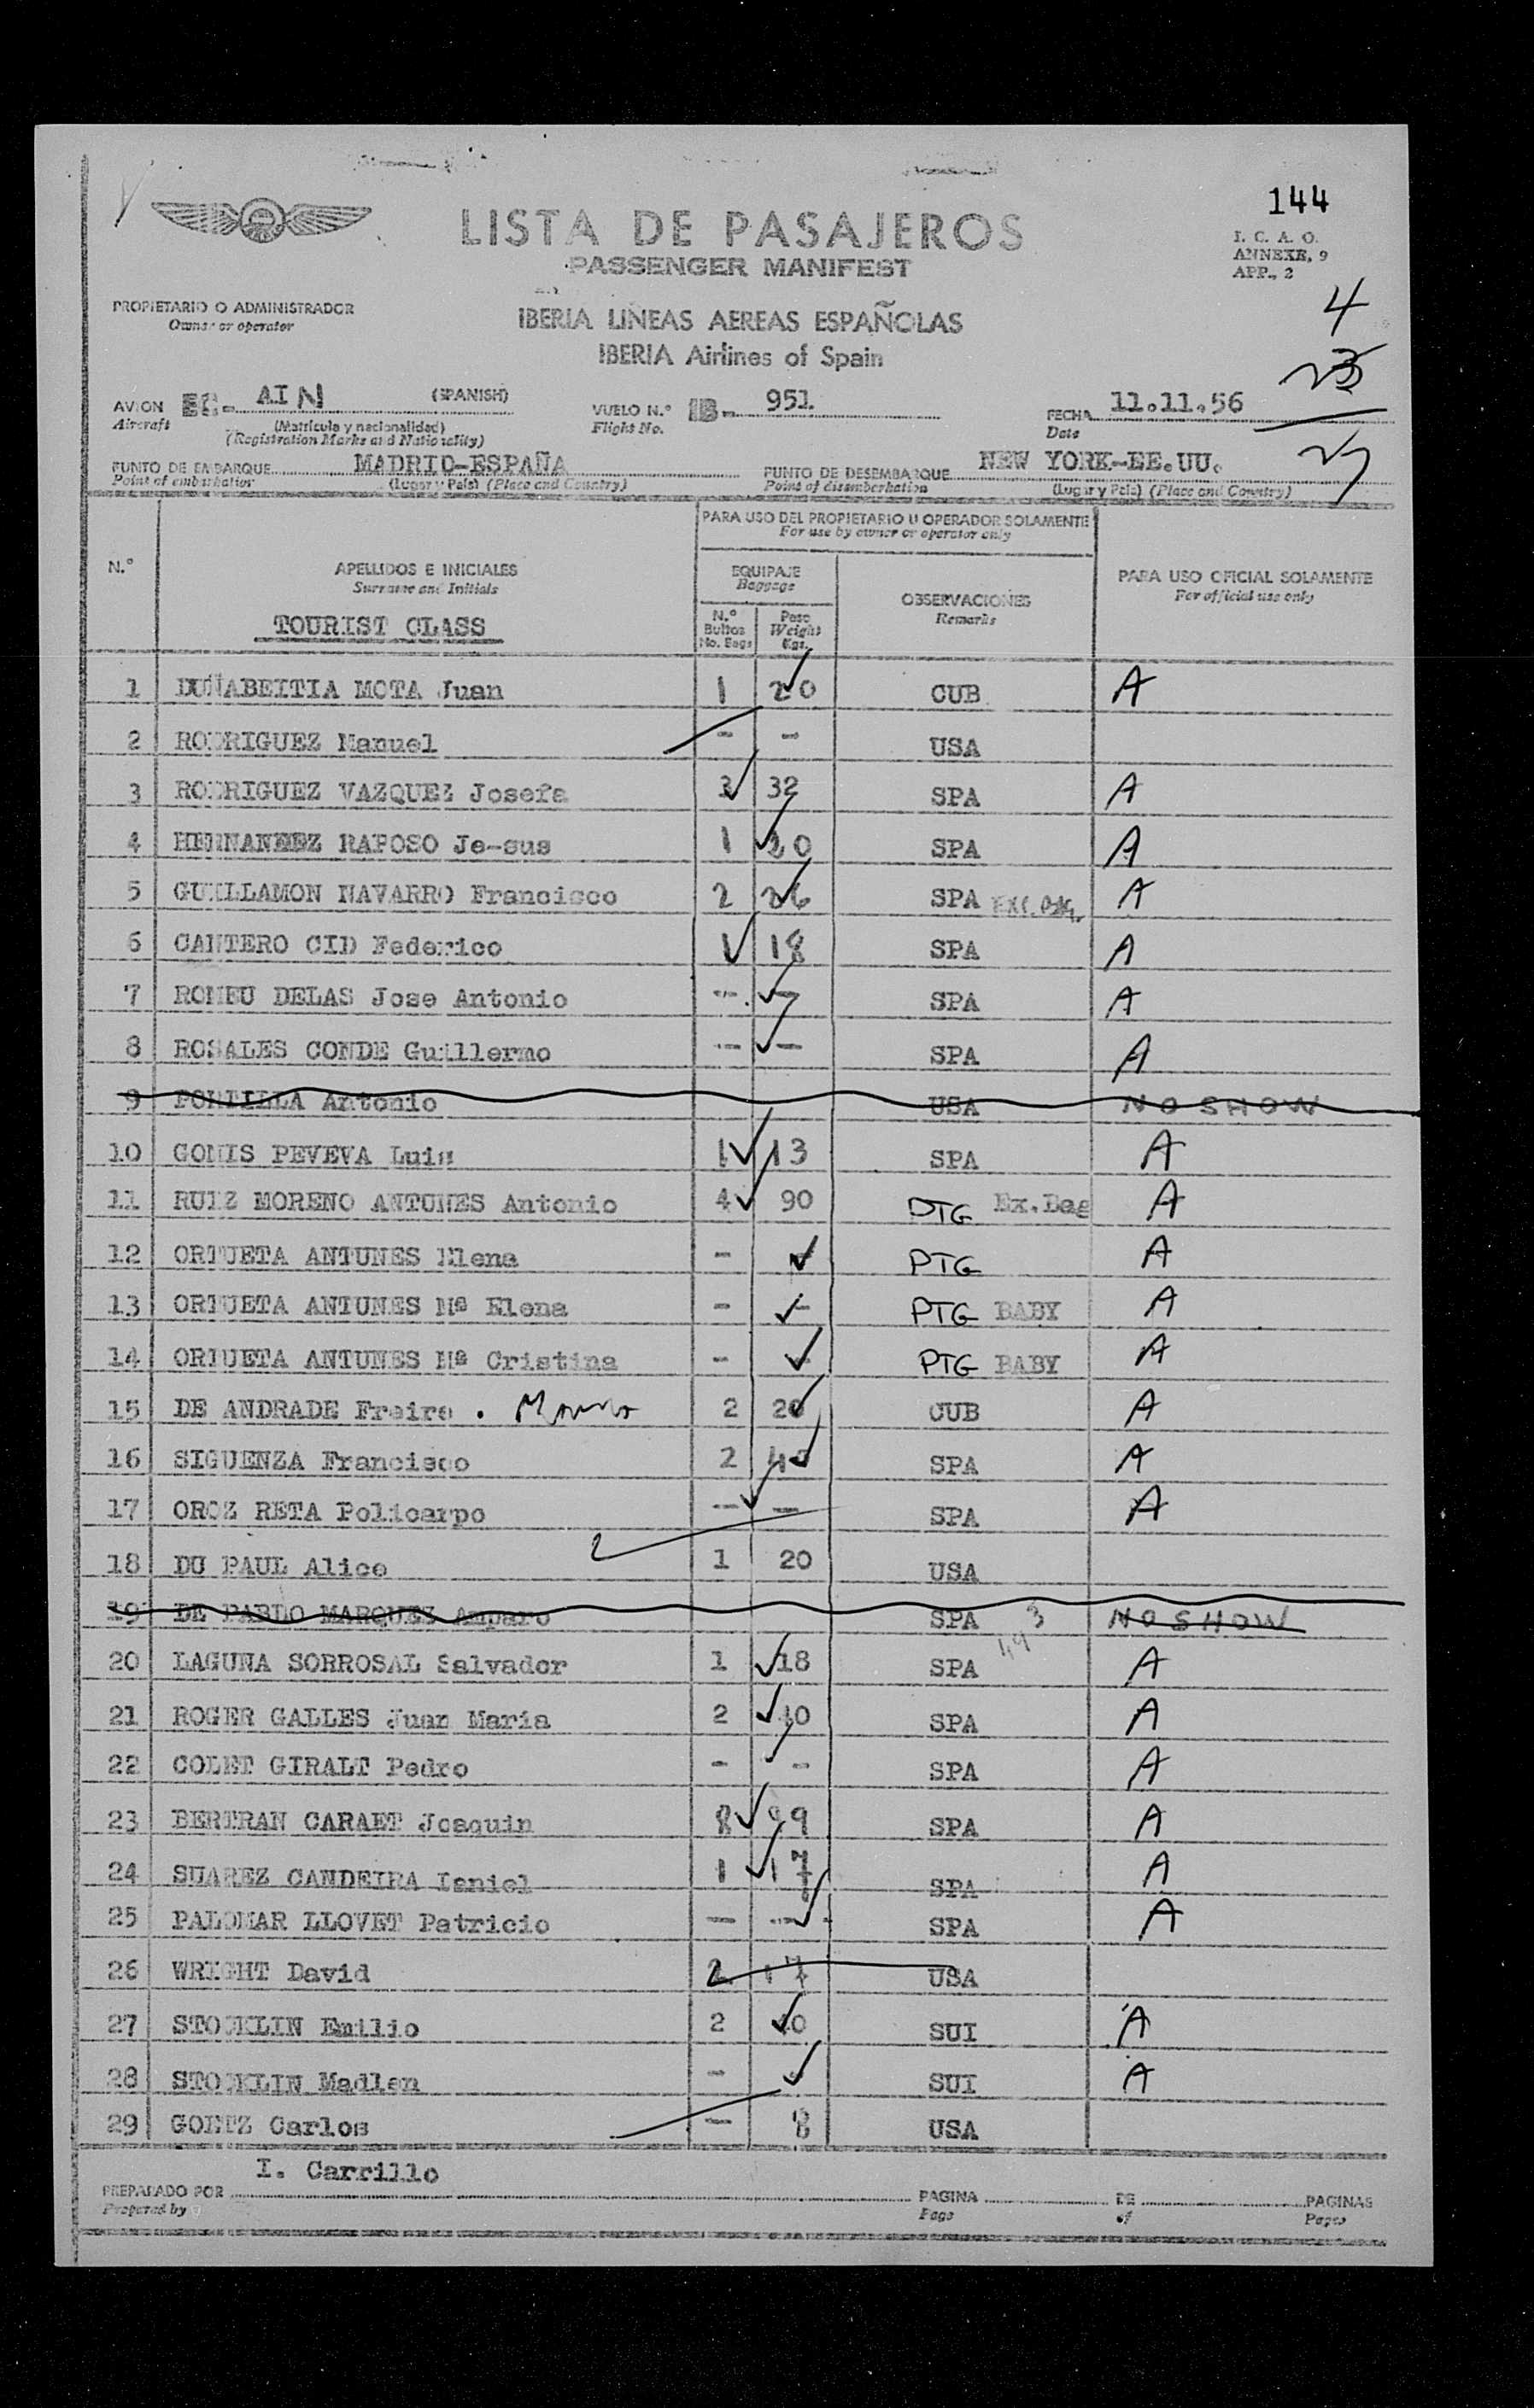 144
LISTA DE PASAJEROS
PASSENGER MANIFEST
I. C. A. O.
ANNEXE, 9
APP., 2
4
23
27
PROPIETARIO O ADMINISTRADOR
Owner or operator
IBERIA LINEAS AEREAS ESPAÑOLAS
IBERIA Airlines of Spain
AVION EC- AIN (SPANISH) VUELO N.° IB- 951 FECHA 11.11.56
Aircraft (Matrícula y nacionalidad) Flight No. Date
(Registration Marks and Nationality)
PUNTO DE EMBARQUE MADRID-ESPAÑA PUNTO DE DESEMBARQUE NEW YORK-EE.UU.
Point of embarkation (Lugar y País) (Place and Country) Point of disembarkation (Lugar y País) (Place and Country)
PARA USO DEL PROPIETARIO U OPERADOR SOLAMENTE
For use by owner or operator only
N.° APELLIDOS E INICIALES EQUIPAJE OBSERVACIONES PARA USO OFICIAL SOLAMENTE
Surname and Initials Baggage Remarks For official use only
TOURIST CLASS N.° Bultos No. Bags Peso Weight Kgs.
1 DUÑABEITIA MOTA Juan 1 20 CUB A
2 RODRIGUEZ Manuel - - USA
3 RODRIGUEZ VAZQUEZ Josefa 3 32 SPA A
4 HERNANEEZ RAPOSO Je-sus 1 20 SPA A
5 GUILLAMON NAVARRO Francisco 2 26 SPA A
6 CANTERO CID Federico 1 18 SPA A
7 ROMEU DELAS Jose Antonio - - SPA A
8 ROSALES CONDE Guillermo - - SPA A
9 PORTILLA Antonio USA NO SHOW
10 GOMIS PEVEVA Luis 1 13 SPA A
11 RUIZ MORENO ANTUNES Antonio 4 90 PTG Ex.Bag A
12 ORTUETA ANTUNES Elena - - PTG A
13 ORTUETA ANTUNES Mª Elena - - PTG BABY A
14 ORTUETA ANTUNES Mª Cristina - - PTG BABY A
15 DE ANDRADE Freire . 2 20 CUB A
16 SIGUENZA Francisco 2 40 SPA A
17 OROZ RETA Policarpo - - SPA A
18 DU PAUL Alice 1 20 USA
19 DE PABLO MARQUEZ Amparo SPA NO SHOW
20 LAGUNA SORROSAL Salvador 1 18 SPA A
21 ROGER GALLES Juan Maria 2 40 SPA A
22 COLET GIRALT Pedro - - SPA A
23 BERTRAN CARAET Joaquin 8 99 SPA A
24 SUAREZ CANDEIRA 1 17 SPA A
25 PALOMAR LLOVET Patricio - - SPA A
26 WRIGHT David 2 17 USA
27 STOCKLIN Emilio 2 40 SUI A
28 STOCKLIN Madlen - - SUI A
29 Carlos - 8 USA
I. Carrillo
PREPARADO POR PAGINA DE PAGINAS
Prepared by Page of Pages